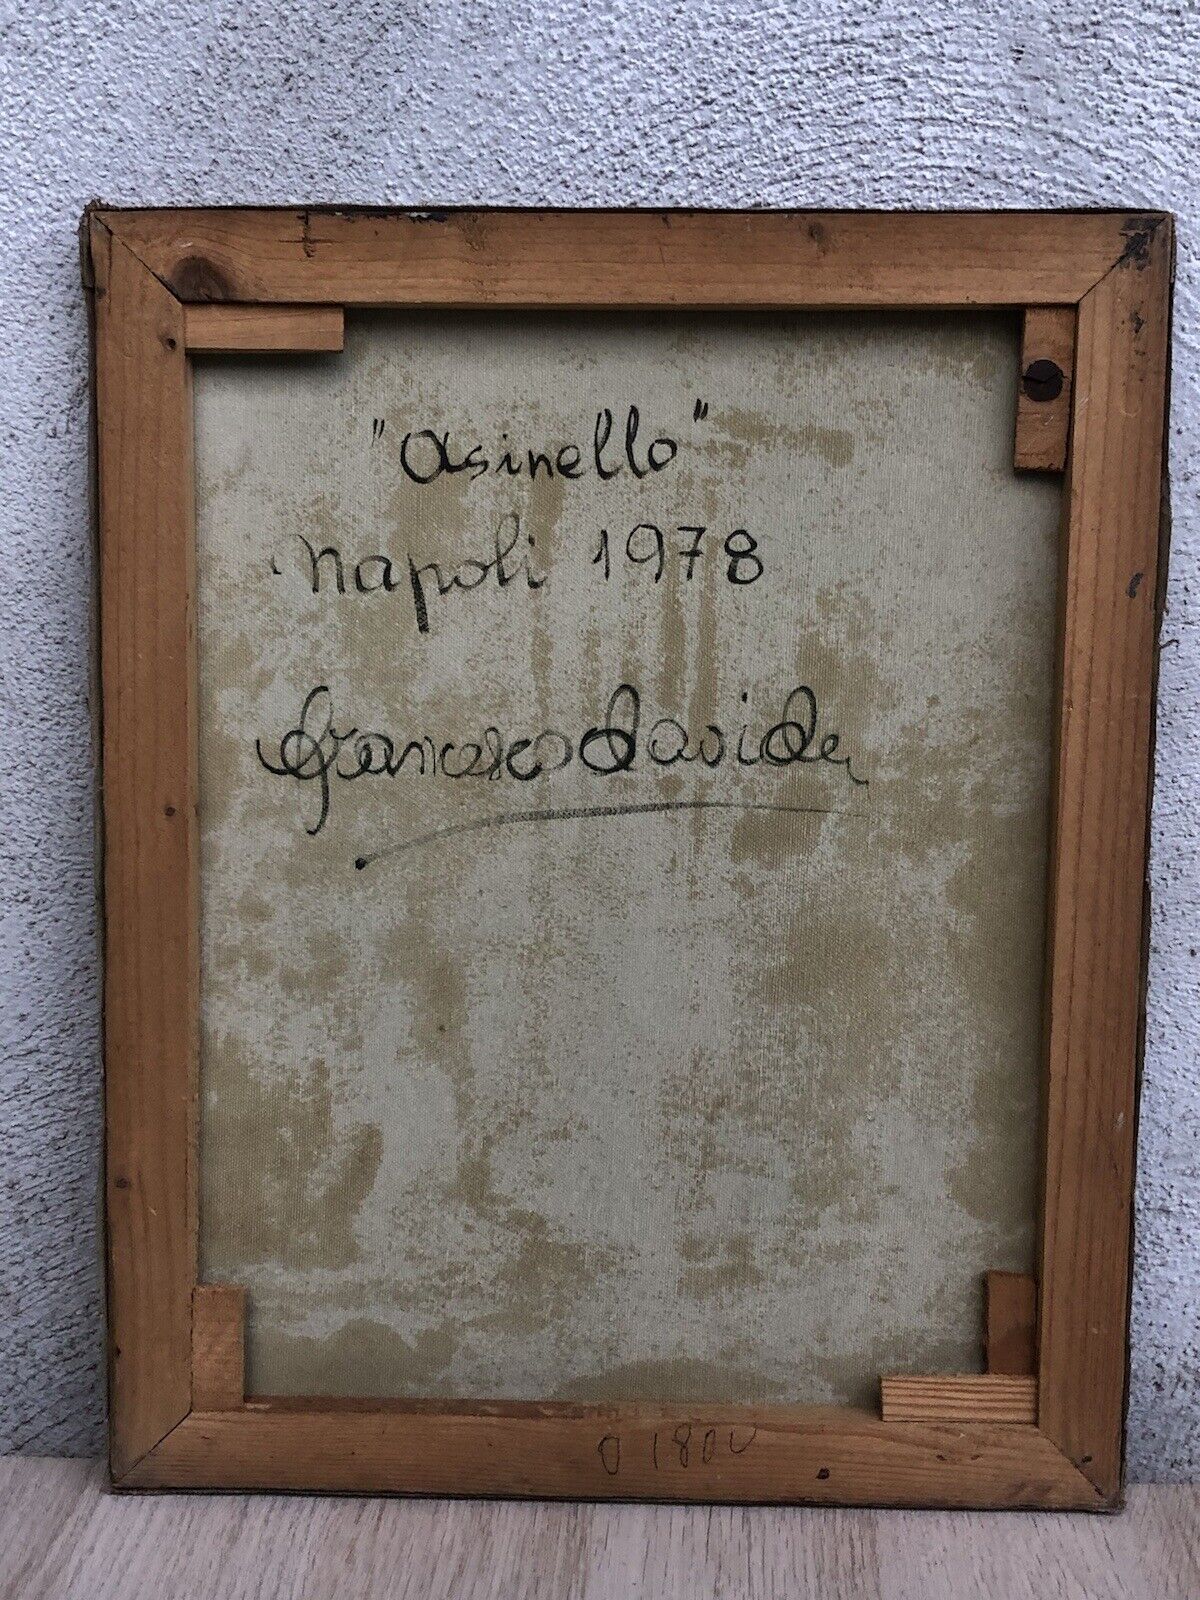 "Asinello"
Napoli 1978
Francesco Davide
0 1800